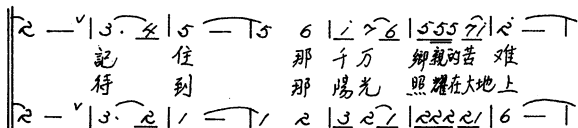 2 — ∨ | 3· 4 | 5 — | 5 6 | i 7 6 | 5 5 5 7 i | 2 — |
記 住 那 千 万 鄉親的苦 难
待 到 那 陽 光 照耀在大地上
2 — ∨ | 3· 2 | 1 — | 1 2 | 3 2 1 | 2 2 2 2 1 | 6 — |